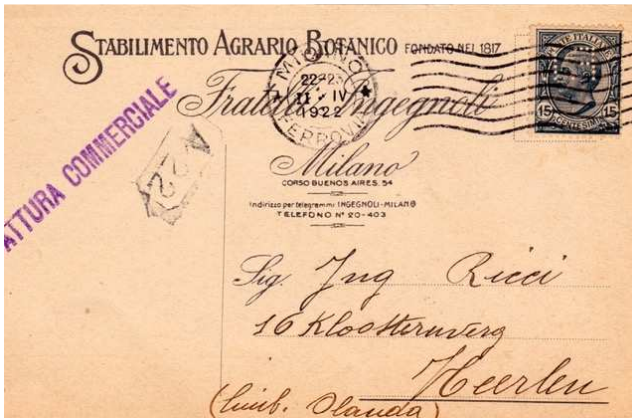 STABILIMENTO AGRARIO BOTANICO FONDATO NEL 1817
Fratelli Ingegnoli
Milano
CORSO BUENOS AIRES. 54
Indirizzo per telegrammi INGEGNOLI-MILANO
TELEFONO Nº 20-403
MILANO
22-23
11 · IV
1922
FERROVIA
POSTE ITALIANE
15 CENTESIMI 15
ATTURA COMMERCIALE
A22
Sig. Ing Ricci
16 Kloosterweg
Heerlen
(Limb. Olanda)